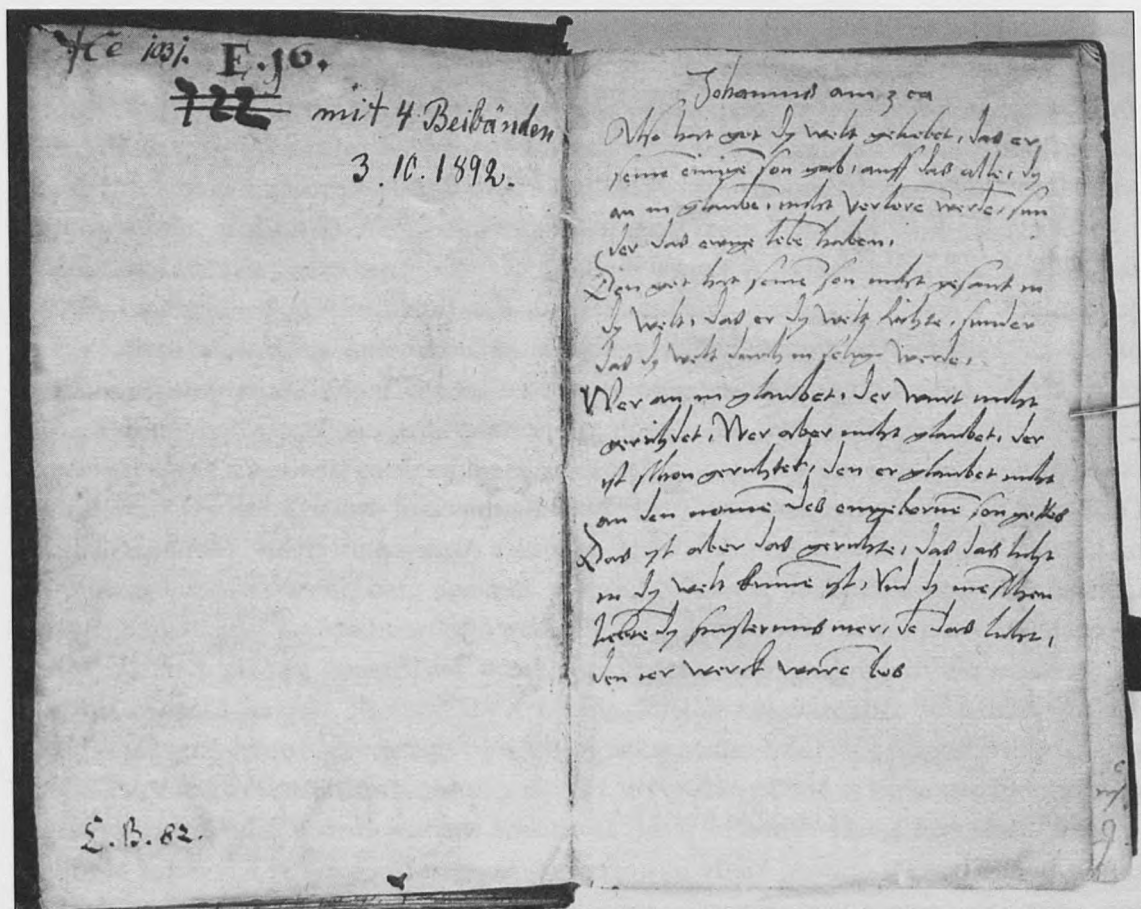 Hc 1031. E. 36.
722 mit 4 Beibänden
3.10.1892.
E.B.82.
Johannus am 3 ca
Also hat got dy welt geliebet, das er
seinē einigē son gab, auff das alle, dy
an in glaubē, nicht verlorē werdē, sun
der das ewige lebē haben,
Den got hat seinē son nicht gesant in
dy welt, das er dy welt richte, sunder
das dy welt durch in selig werde,
Wer an in glaubet, der wirt nicht
gerichtet, Wer aber nicht glaubet, der
ist schon gerichtet, den er glaubet nicht
an den namē des eingebornē son gottes
Das yst aber das gerichte, das das licht
in dy welt kumē ist, Vnd dy menschen
liebtē dy finsternus mer, dē das licht,
den ier werck warē bos